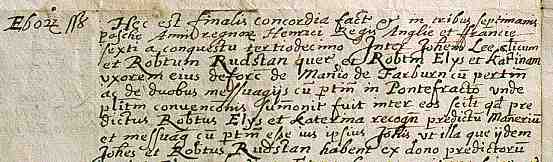 Ebor ss Hec est finalis concordia fact in tribus septimanis
pasche Anno regnor Henrici Regis Anglie et ffrancie
sexti a conquestu tertiodecimo Inter Johem Lee clicum
et Robtum Rudstan quer et Robtm Elys et Katinam
vxorem eius deforc de Manio de Farburn cu pertin
ac de duobus messuagijs cu ptin in Pontefracto vnde
plitm convencionis sumonit fuit inter eos scilt qd pre
dictus Robtus Elys et Katerina recogn predictu Maneriu
et messuag cu ptin esse ius ipsius Johis vt illa que ijdem
Johes et Robtus Rudstan habent ex dono predictoru